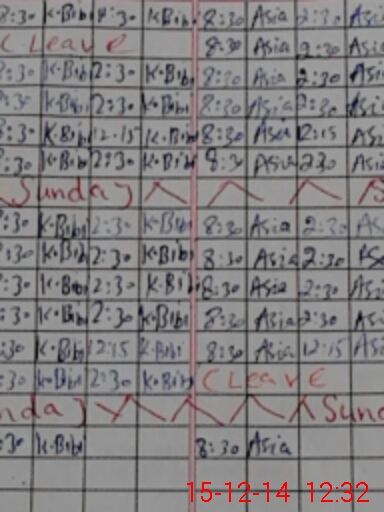 8:30 K·Bibi 2:30 K·Bibi 8:30 Asia 2:30 Asia
( Leave 8:30 Asia 2:30 Asia
8:30 K·Bibi 2:30 K·Bibi 8:30 Asia 2:30 Asia
8:30 K·Bibi 2:30 K·Bibi 8:30 Asia 2:30 Asi
8:30 K·Bibi 12:15 K·Bibi 8:30 Asia 12:15 Asi
8:30 K·Bibi 2:30 K·Bibi 8:30 Asia 2:30 Asi
(Sunday)
:30 K·Bibi 2:30 K·Bibi 8:30 Asia 2:30 As
:30 K·Bibi 2:30 K·Bibi 8:30 Asia 2:30 As
:30 K·Bibi 2:30 K·Bibi 8:30 Asia 2:30 Asi
:30 K·Bibi 2:30 K·Bibi 8:30 Asia 2:30 Asi
:30 K·Bibi 12:15 K·Bibi 8:30 Asia 12:15 Asi
:30 K·Bibi 2:30 K·Bibi (Leave
nday) Sund
:30 K·Bibi 8:30 Asia
15-12-14 12:32